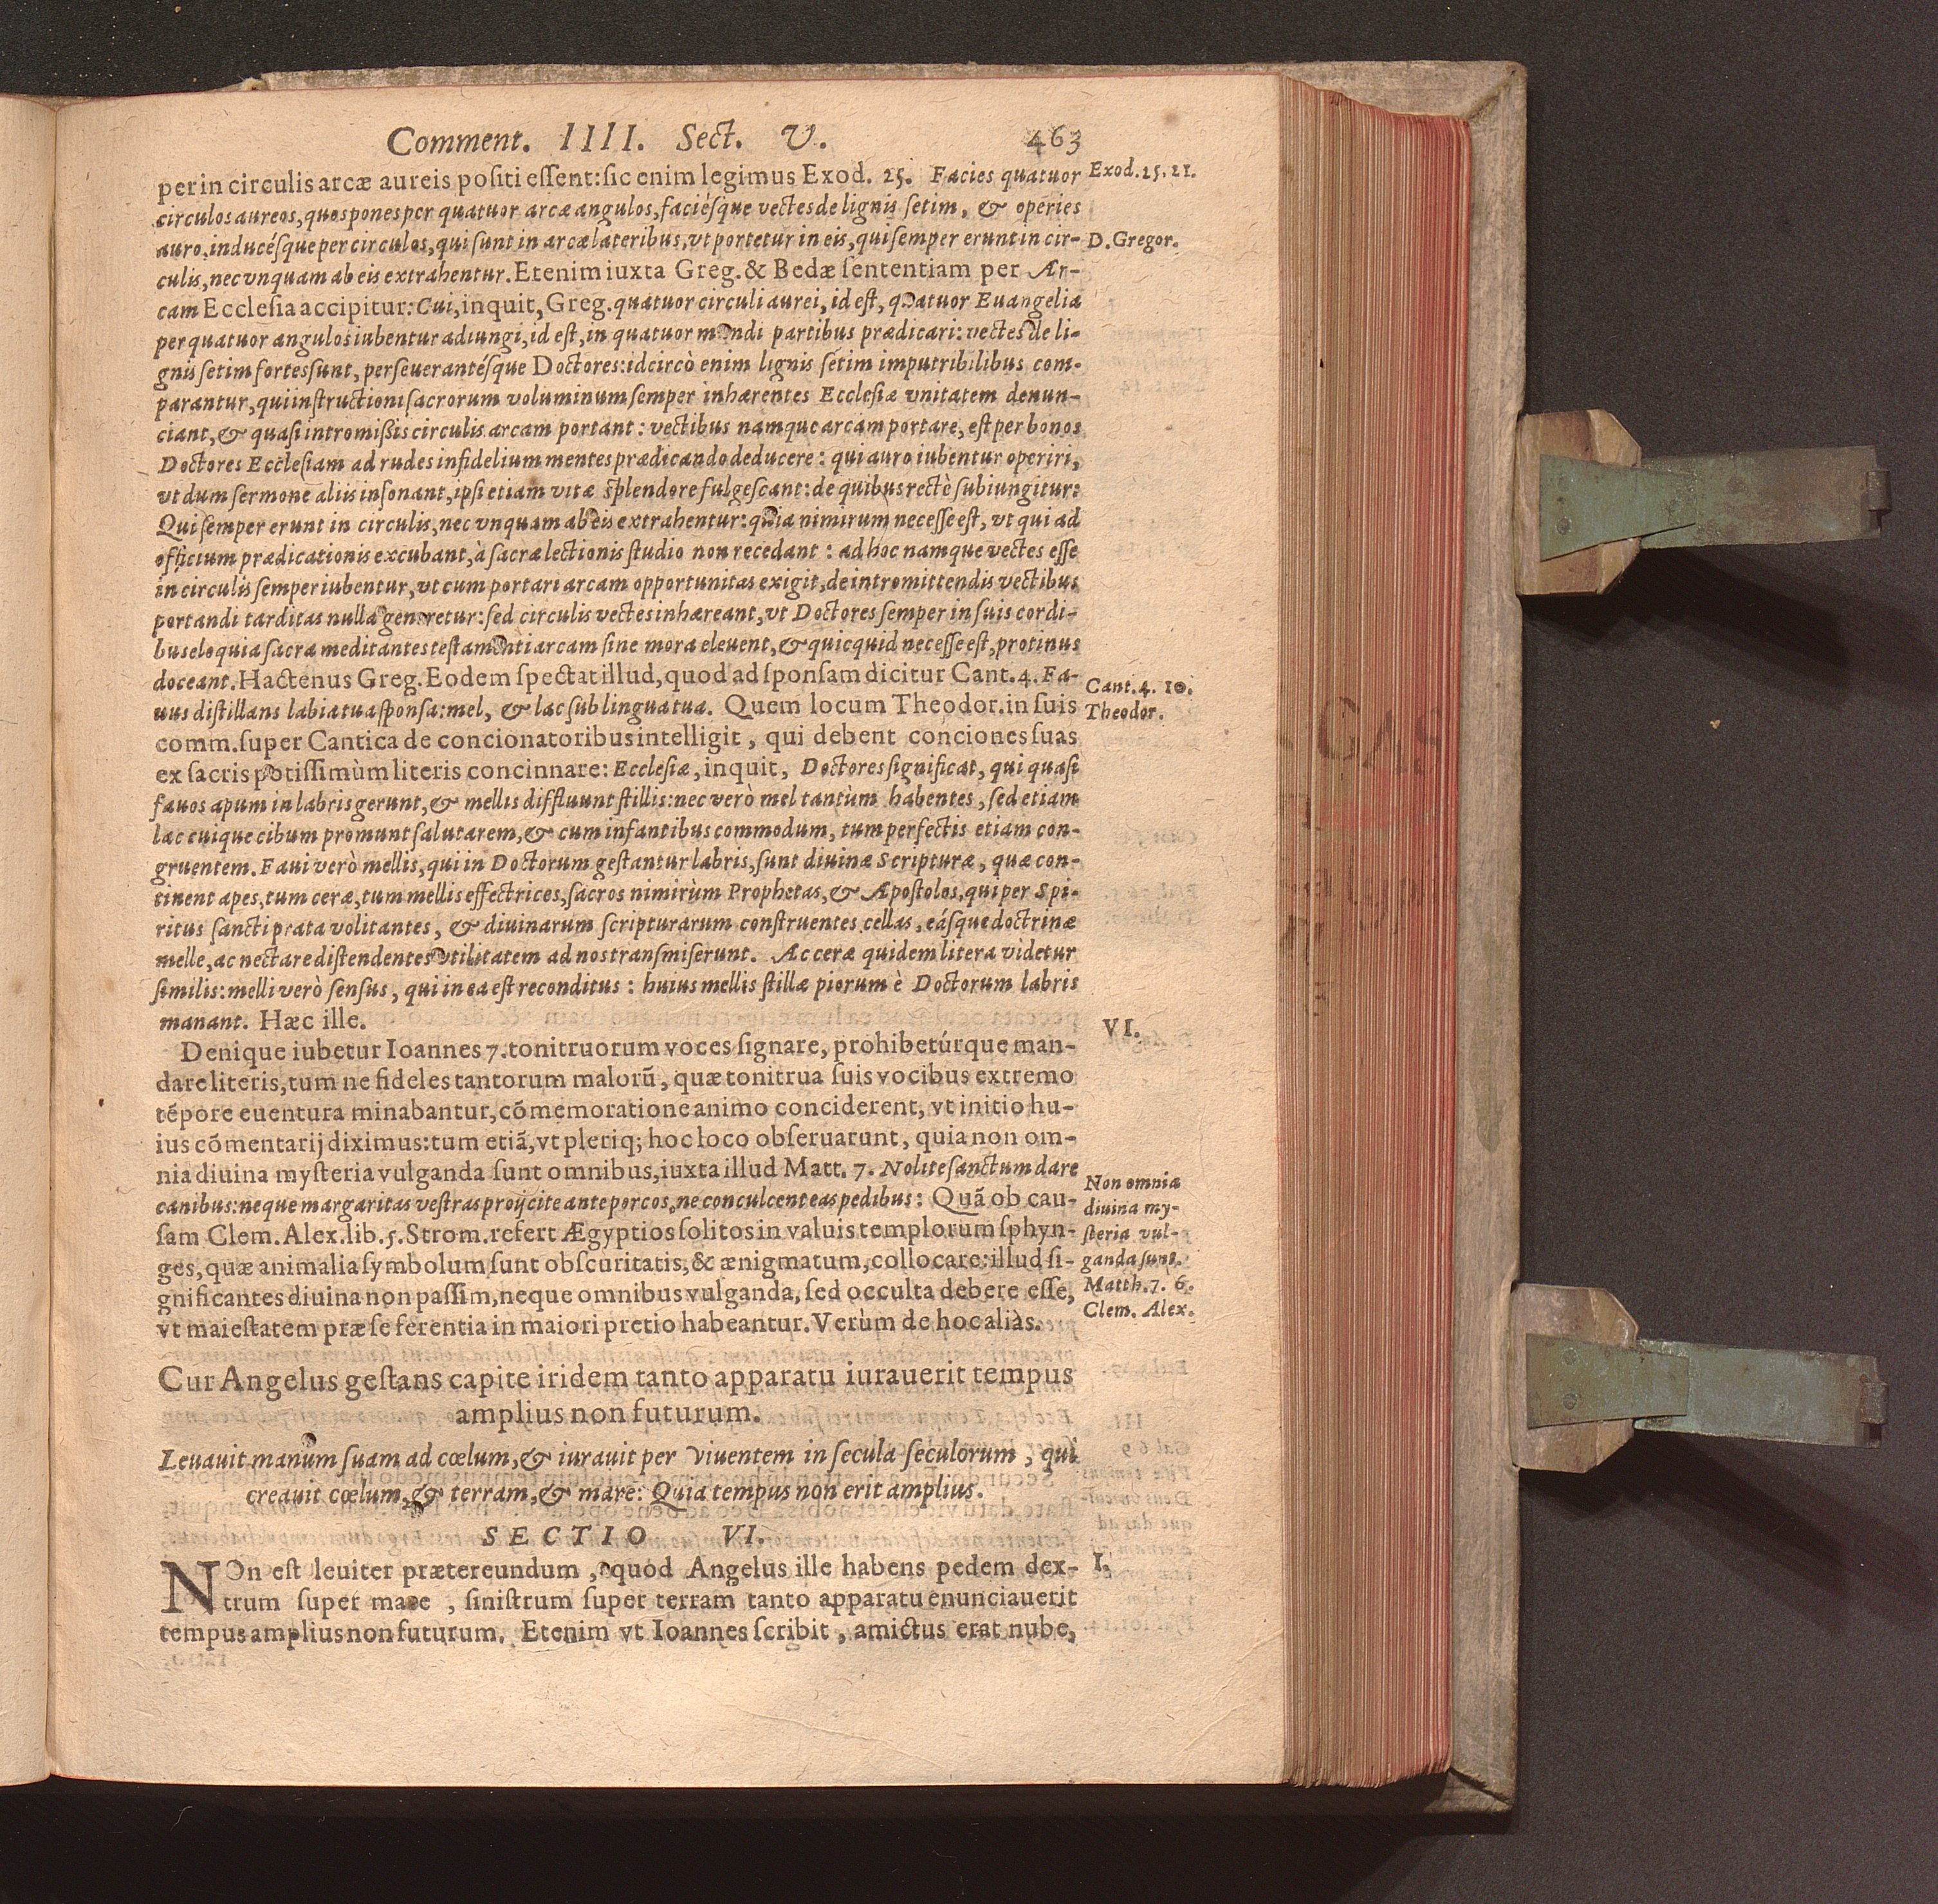 Comment. IIII. Sect. V. 463
per in circulis arcæ aureis positi essent: sic enim legimus Exod. 25. Facies quatuor
Exod. 25. 21.
circulos aureos, quos pones per quatuor arcæ angulos, faciésque vectes de lignis setim, & operies
auro, inducésque per circulos, qui sunt in arcæ lateribus, vt portetur in eis, qui semper erunt in cir-
D. Gregor.
culis, nec vnquam ab eis extrahentur. Etenim iuxta Greg. & Bedæ sententiam per Ar-
cam Ecclesia accipitur: Cui, inquit, Greg. quatuor circuli aurei, id est, quatuor Euangelia
per quatuor angulos iubentur adiungi, id est, in quatuor mundi partibus prædicari: vectes de li-
gnis setim fortes sunt, perseuerantésque Doctores: idcircò enim lignis setim imputribilibus com-
parantur, qui instructioni sacrorum voluminum semper inhærentes Ecclesiæ vnitatem denun-
ciant, & quasi intromissis circulis arcam portant: vectibus namque arcam portare, est per bonos
Doctores Ecclesiam ad rudes infidelium mentes prædicando deducere: qui auro iubentur operiri,
vt dum sermone aliis insonant, ipsi etiam vitæ splendore fulgescant: de quibus rectè subiungitur:
Qui semper erunt in circulis, nec vnquam ab eis extrahentur: quia nimirum necesse est, vt qui ad
officium prædicationis excubant, à sacræ lectionis studio non recedant: ad hoc namque vectes esse
in circulis semper iubentur, vt cum portari arcam opportunitas exigit, de intromittendis vectibus
portandi tarditas nulla generetur: sed circulis vectes inhæreant, vt Doctores semper in suis cordi-
bus eloquia sacra meditantes testamenti arcam sine mora eleuent, & quicquid necesse est, protinus
doceant. Hactenus Greg. Eodem spectat illud, quod ad sponsam dicitur Cant. 4. Fa-
Cant. 4. 10.
uus distillans labia tua sponsa: mel, & lac sub lingua tua. Quem locum Theodor. in suis
Theodor.
comm. super Cantica de concionatoribus intelligit, qui debent conciones suas
ex sacris potissimùm literis concinnare: Ecclesiæ, inquit, Doctores significat, qui quasi
fauos apum in labris gerunt, & mellis diffluunt stillis: nec verò mel tantùm habentes, sed etiam
lac cuique cibum promunt salutarem, & cum infantibus commodum, tum perfectis etiam con-
gruentem. Faui verò mellis, qui in Doctorum gestantur labris, sunt diuinæ Scripturæ, quæ con-
tinent apes, tum ceræ, tum mellis effectrices, sacros nimirùm Prophetas, & Apostolos, qui per Spi-
ritus sancti prata volitantes, & diuinarum scripturarum construentes cellas, eásque doctrinæ
melle, ac nectare distendentes vtilitatem ad nos transmiserunt. Ac ceræ quidem litera videtur
similis: melli verò sensus, qui in ea est reconditus: huius mellis stillæ piorum è Doctorum labris
manant. Hæc ille.
VI.
Denique iubetur Ioannes 7. tonitruorum voces signare, prohibetúrque man-
dare literis, tum ne fideles tantorum malorũ, quæ tonitrua suis vocibus extremo
tẽpore euentura minabantur, cõmemoratione animo conciderent, vt initio hu-
ius cõmentarij diximus: tum etiã, vt pleriq; hoc loco obseruarunt, quia non om-
nia diuina mysteria vulganda sunt omnibus, iuxta illud Matt. 7. Nolite sanctum dare
canibus: neque margaritas vestras proijcite ante porcos, ne conculcent eas pedibus: Quã ob cau-
sam Clem. Alex. lib. 5. Strom. refert Ægyptios solitos in valuis templorum sphyn-
ges, quæ animalia symbolum sunt obscuritatis, & ænigmatum, collocare: illud si-
gnificantes diuina non passim, neque omnibus vulganda, sed occulta debere esse,
vt maiestatem præ se ferentia in maiori pretio habeantur. Verùm de hoc aliàs.
Non omnia
diuina my-
steria vul-
ganda sunt.
Matth. 7. 6.
Clem. Alex.
Cur Angelus gestans capite iridem tanto apparatu iurauerit tempus
amplius non futurum.
Leuauit manum suam ad cœlum, & iurauit per Viuentem in secula seculorum, qui
creauit cœlum, & terram, & mare: Quia tempus non erit amplius.
SECTIO VI.
NOn est leuiter prætereundum, quòd Angelus ille habens pedem dex-
I.
trum super mare, sinistrum super terram tanto apparatu enunciauerit
tempus amplius non futurum. Etenim vt Ioannes scribit, amictus erat nube,